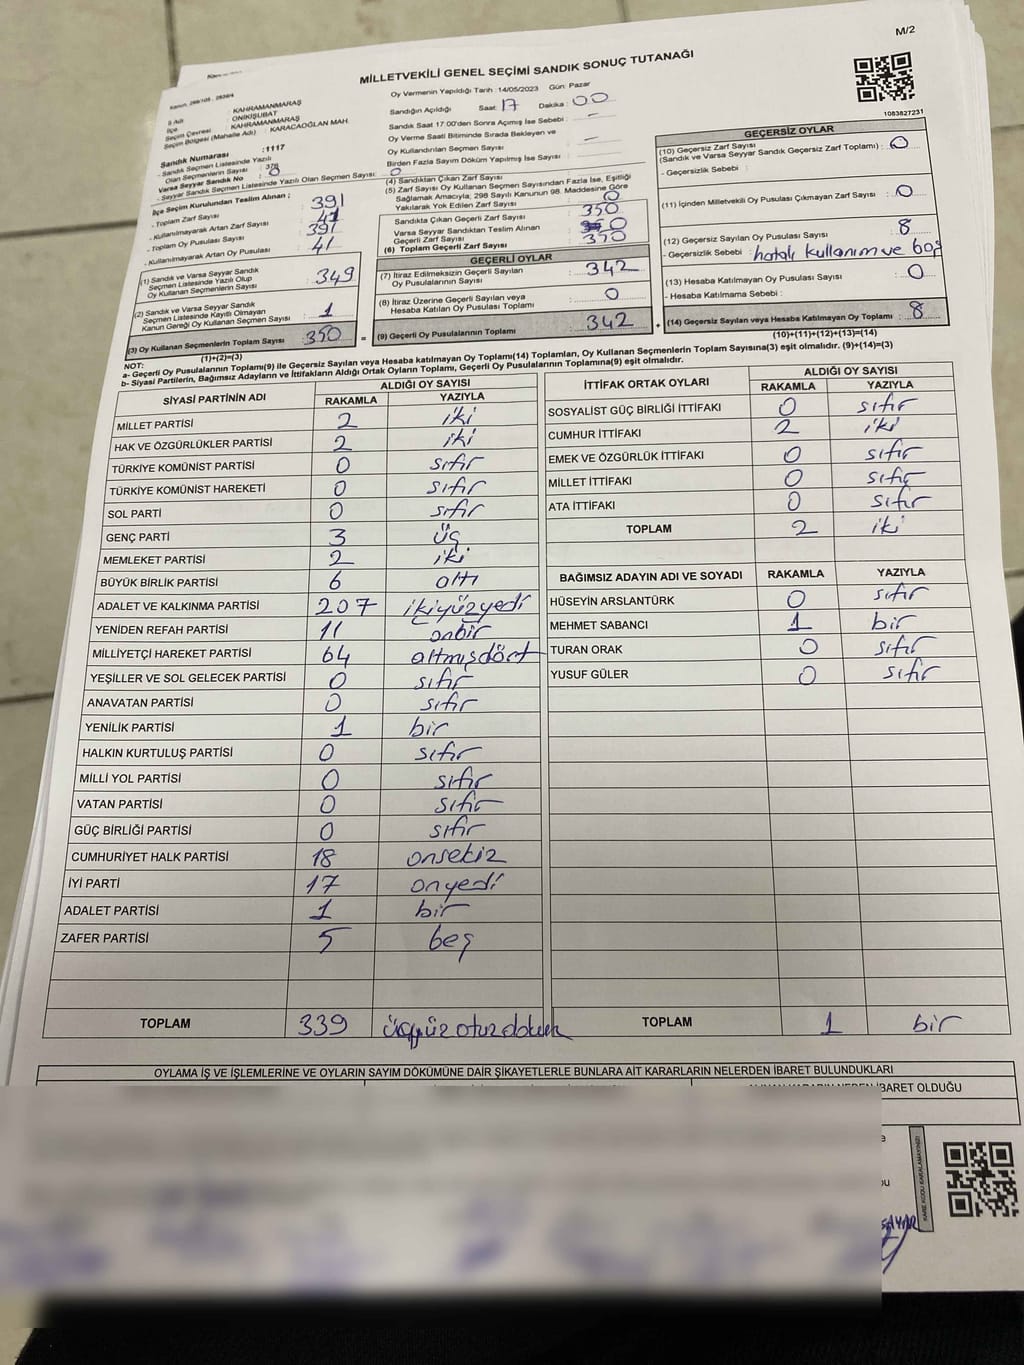 M/2
MİLLETVEKİLİ GENEL SEÇİMİ SANDIK SONUÇ TUTANAĞI
1083827231
İl Adı : KAHRAMANMARAŞ
İlçe : ONİKİŞUBAT
Seçim Çevresi : KAHRAMANMARAŞ
Seçim Bölgesi (Mahalle Adı) : KARACAOĞLAN MAH.
Sandık Numarası : 1117
- Sandık Seçmen Listesinde Yazılı
Olan Seçmenlerin Sayısı : 378
Varsa Seyyar Sandık No : 0
- Seyyar Sandık Seçmen Listesinde Yazılı Olan Seçmen Sayısı: 0
İlçe Seçim Kurulundan Teslim Alınan ;
- Toplam Zarf Sayısı 391
- Kullanılmayarak Artan Zarf Sayısı 41
- Toplam Oy Pusulası Sayısı 391
- Kullanılmayarak Artan Oy Pusulası 41
(1) Sandık ve Varsa Seyyar Sandık
Seçmen Listesinde Yazılı Olup
Oy Kullanan Seçmenlerin Sayısı : 349
(2) Sandık ve Varsa Seyyar Sandık
Seçmen Listesinde Kayıtlı Olmayan
Kanun Gereği Oy Kullanan Seçmen Sayısı : 1
(3) Oy Kullanan Seçmenlerin Toplam Sayısı : 350
(1)+(2)=(3)
Oy Vermenin Yapıldığı Tarih :14/05/2023 Gün: Pazar
Sandığın Açıldığı Saat: 17 Dakika : 00
Sandık Saat 17:00'den Sonra Açılmış İse Sebebi : —
Oy Verme Saati Bitiminde Sırada Bekleyen ve
Oy Kullandırılan Seçmen Sayısı : —
Birden Fazla Sayım Döküm Yapılmış İse Sayısı : —
(4) Sandıktan Çıkan Zarf Sayısı
(5) Zarf Sayısı Oy Kullanan Seçmen Sayısından Fazla İse, Eşitliği
Sağlamak Amacıyla; 298 Sayılı Kanunun 98. Maddesine Göre
Yakılarak Yok Edilen Zarf Sayısı : 0
Sandıkta Çıkan Geçerli Zarf Sayısı : 350
Varsa Seyyar Sandıktan Teslim Alınan
Geçerli Zarf Sayısı : 0
(6) Toplam Geçerli Zarf Sayısı : 350
GEÇERLİ OYLAR
(7) İtiraz Edilmeksizin Geçerli Sayılan
Oy Pusulalarının Sayısı : 342
(8) İtiraz Üzerine Geçerli Sayılan veya
Hesaba Katılan Oy Pusulası Toplamı : 0
(9) Geçerli Oy Pusulalarının Toplamı : 342
GEÇERSİZ OYLAR
(10) Geçersiz Zarf Sayısı
(Sandık ve Varsa Seyyar Sandık Geçersiz Zarf Toplamı) : 0
- Geçersizlik Sebebi :
(11) İçinden Milletvekili Oy Pusulası Çıkmayan Zarf Sayısı : 0
(12) Geçersiz Sayılan Oy Pusulası Sayısı : 8
- Geçersizlik Sebebi : hatalı kullanım ve boş
(13) Hesaba Katılmayan Oy Pusulası Sayısı : 0
- Hesaba Katılmama Sebebi :
(14) Geçersiz Sayılan veya Hesaba Katılmayan Oy Toplamı : 8
(10)+(11)+(12)+(13)=(14)
NOT:
a- Geçerli Oy Pusulalarının Toplamı(9) ile Geçersiz Sayılan veya Hesaba katılmayan Oy Toplamı(14) Toplamları, Oy Kullanan Seçmenlerin Toplam Sayısına(3) eşit olmalıdır. (9)+(14)=(3)
b- Siyasi Partilerin, Bağımsız Adayların ve İttifakların Aldığı Ortak Oyların Toplamı, Geçerli Oy Pusulalarının Toplamına(9) eşit olmalıdır.
SİYASİ PARTİNİN ADI ALDIĞI OY SAYISI
RAKAMLA YAZIYLA
MİLLET PARTİSİ 2 iki
HAK VE ÖZGÜRLÜKLER PARTİSİ 2 iki
TÜRKİYE KOMÜNİST PARTİSİ 0 sıfır
TÜRKİYE KOMÜNİST HAREKETİ 0 sıfır
SOL PARTİ 0 sıfır
GENÇ PARTİ 3 üç
MEMLEKET PARTİSİ 2 iki
BÜYÜK BİRLİK PARTİSİ 6 altı
ADALET VE KALKINMA PARTİSİ 207 ikiyüzyedi
YENİDEN REFAH PARTİSİ 11 onbir
MİLLİYETÇİ HAREKET PARTİSİ 64 altmışdört
YEŞİLLER VE SOL GELECEK PARTİSİ 0 sıfır
ANAVATAN PARTİSİ 0 sıfır
YENİLİK PARTİSİ 1 bir
HALKIN KURTULUŞ PARTİSİ 0 sıfır
MİLLİ YOL PARTİSİ 0 sıfır
VATAN PARTİSİ 0 sıfır
GÜÇ BİRLİĞİ PARTİSİ 0 sıfır
CUMHURİYET HALK PARTİSİ 18 onsekiz
İYİ PARTİ 17 onyedi
ADALET PARTİSİ 1 bir
ZAFER PARTİSİ 5 beş
TOPLAM 339 üçyüzotuzdokuz
İTTİFAK ORTAK OYLARI ALDIĞI OY SAYISI
RAKAMLA YAZIYLA
SOSYALİST GÜÇ BİRLİĞİ İTTİFAKI 0 sıfır
CUMHUR İTTİFAKI 2 iki
EMEK VE ÖZGÜRLÜK İTTİFAKI 0 sıfır
MİLLET İTTİFAKI 0 sıfır
ATA İTTİFAKI 0 sıfır
TOPLAM 2 iki
BAĞIMSIZ ADAYIN ADI VE SOYADI RAKAMLA YAZIYLA
HÜSEYİN ARSLANTÜRK 0 sıfır
MEHMET SABANCI 1 bir
TURAN ORAK 0 sıfır
YUSUF GÜLER 0 sıfır
TOPLAM 1 bir
OYLAMA İŞ VE İŞLEMLERİNE VE OYLARIN SAYIM DÖKÜMÜNE DAİR ŞİKAYETLERLE BUNLARA AİT KARARLARIN NELERDEN İBARET BULUNDUKLARI
İBARET OLDUĞU
KARE KODU KARALAMAYINIZ!